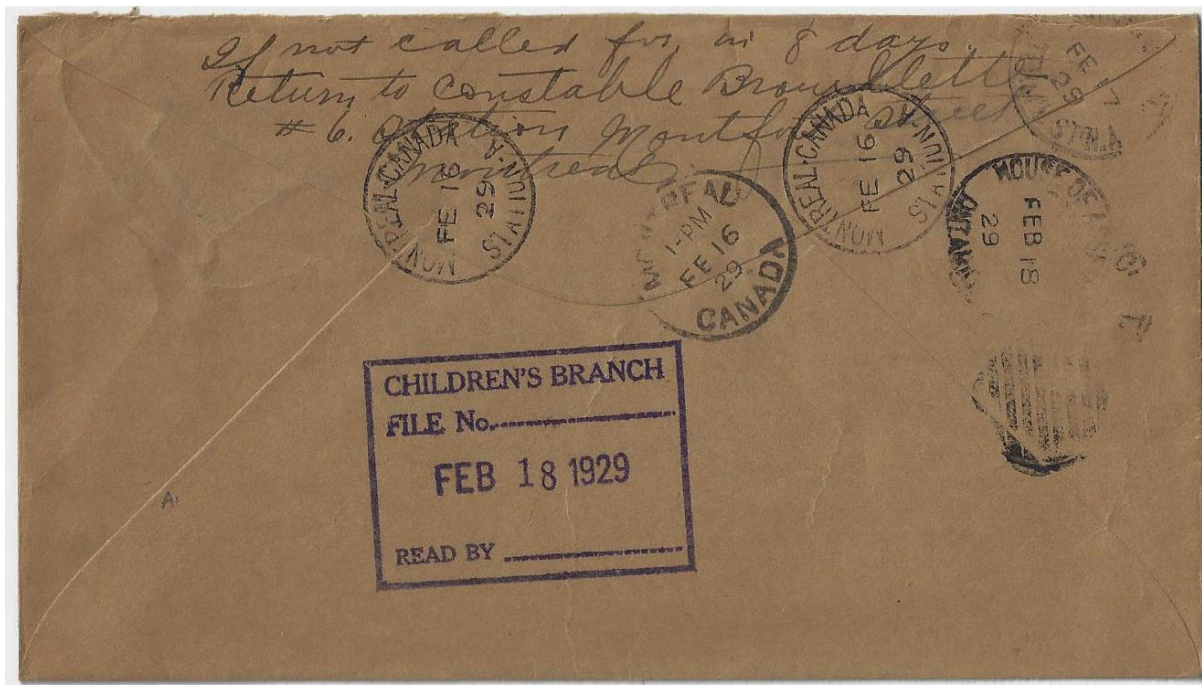 If not called for in 8 days.
Return to Constable
# 6. Station Street
Montreal
MONTREAL-CANADA
FE 16
29
STN.
MONTREAL
1-PM
FE 16
29
CANADA
MONTREAL-CANADA
FE 16
29
FE 17
29
HOUSE OF
FEB 18
29
ONTARIO
CHILDREN'S BRANCH
FILE No.
FEB 18 1929
READ BY
A.